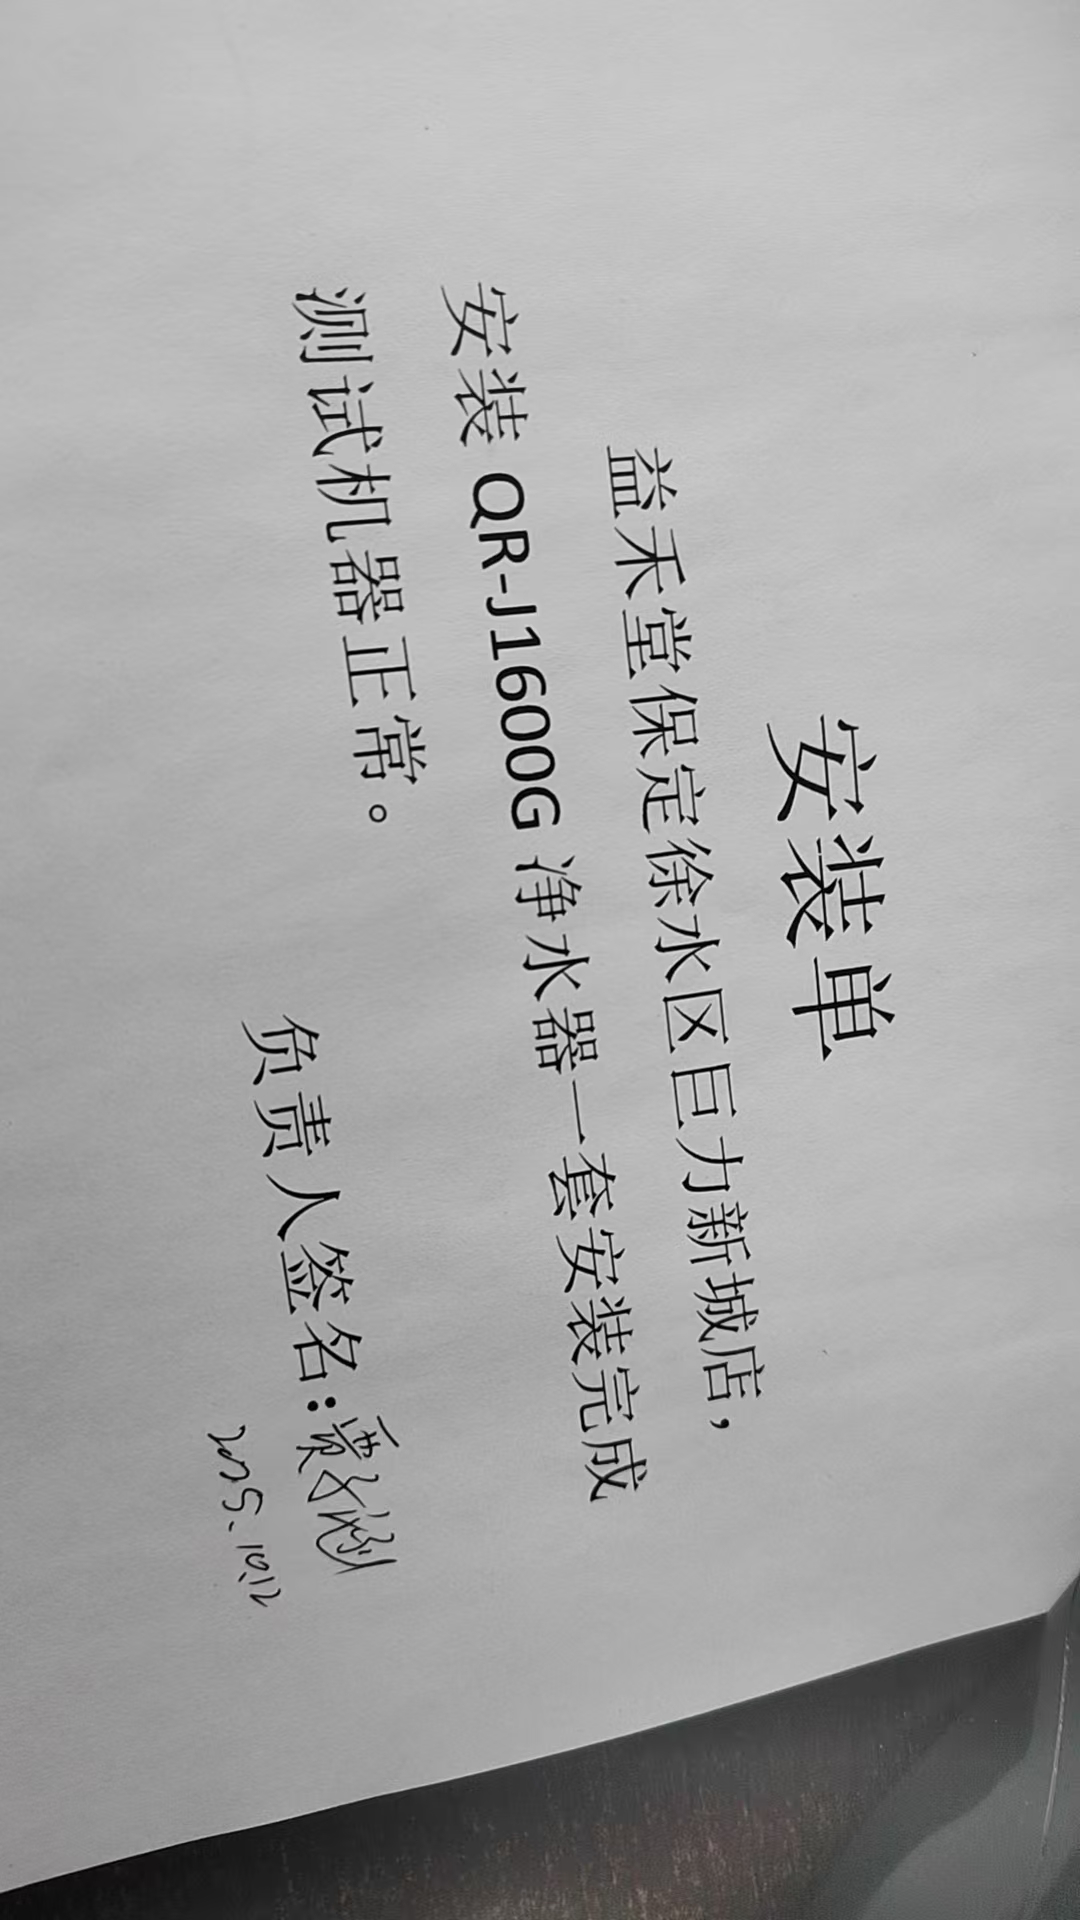 安装单
益禾堂保定徐水区巨力新城店，
安装 QR-J1600G 净水器一套安装完成
测试机器正常。
负责人签名：贾子涵
2025.10.12